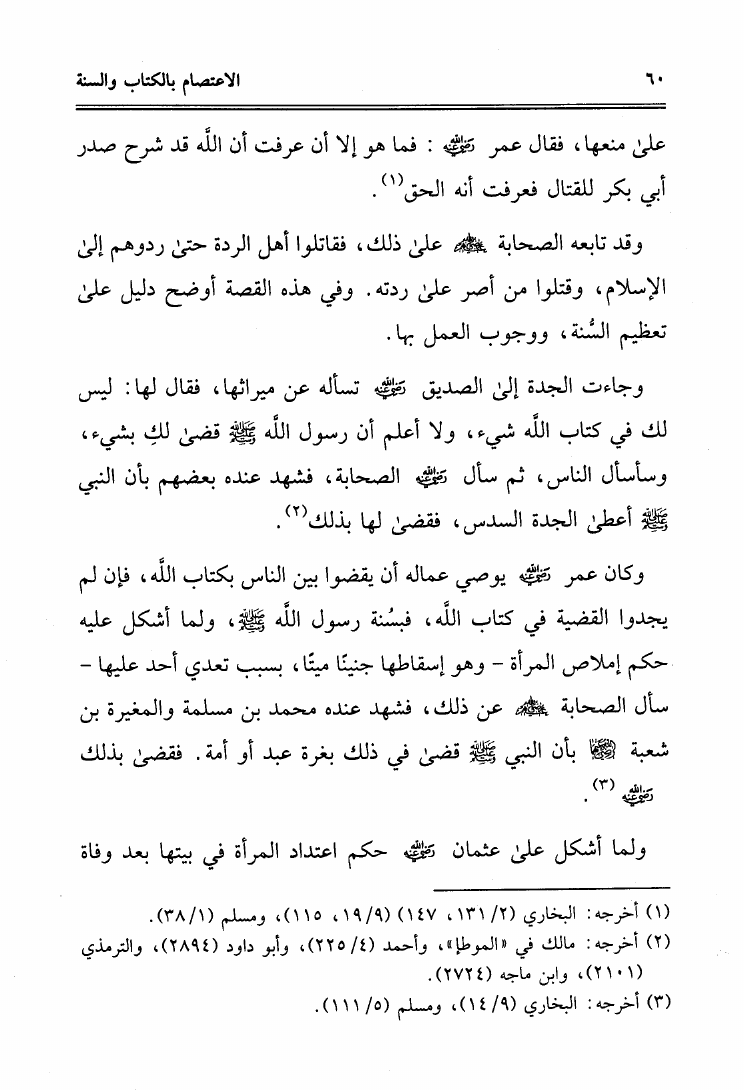 ٦٠ الاعتصام بالكتاب والسنة
علىٰ منعها، فقال عمر رضي الله عنه : فما هو إلا أن عرفت أن اللَّه قد شرح صدر
أبي بكر للقتال فعرفت أنه الحق(١).
وقد تابعه الصحابة رضي الله عنهم علىٰ ذلك، فقاتلوا أهل الردة حتىٰ ردوهم إلىٰ
الإسلام، وقتلوا من أصر علىٰ ردته. وفي هذه القصة أوضح دليل علىٰ
تعظيم السُّنة، ووجوب العمل بها.
وجاءت الجدة إلىٰ الصديق رضي الله عنه تسأله عن ميراثها، فقال لها: ليس
لك في كتاب اللَّه شيء، ولا أعلم أن رسول اللَّه ﷺ قضىٰ لكِ بشيء،
وسأسأل الناس، ثم سأل رضي الله عنه الصحابة، فشهد عنده بعضهم بأن النبي
ﷺ أعطىٰ الجدة السدس، فقضىٰ لها بذلك(٢).
وكان عمر رضي الله عنه يوصي عماله أن يقضوا بين الناس بكتاب اللَّه، فإن لم
يجدوا القضية في كتاب اللَّه، فبسُنة رسول اللَّه ﷺ، ولما أشكل عليه
حكم إملاص المرأة – وهو إسقاطها جنينًا ميتًا، بسبب تعدي أحد عليها –
سأل الصحابة رضي الله عنهم عن ذلك، فشهد عنده محمد بن مسلمة والمغيرة بن
شعبة رضي الله عنهما بأن النبي ﷺ قضىٰ في ذلك بغرة عبد أو أمة. فقضىٰ بذلك
رضي الله عنه (٣).
ولما أشكل علىٰ عثمان رضي الله عنه حكم اعتداد المرأة في بيتها بعد وفاة
(١) أخرجه: البخاري (٢/ ١٣١، ١٤٧) (٩/ ١٩، ١١٥)، ومسلم (١/ ٣٨).
(٢) أخرجه: مالك في «الموطإ»، وأحمد (٤/ ٢٢٥)، وأبو داود (٢٨٩٤)، والترمذي
(٢١٠١)، وابن ماجه (٢٧٢٤).
(٣) أخرجه: البخاري (٩/ ١٤)، ومسلم (٥/ ١١١).